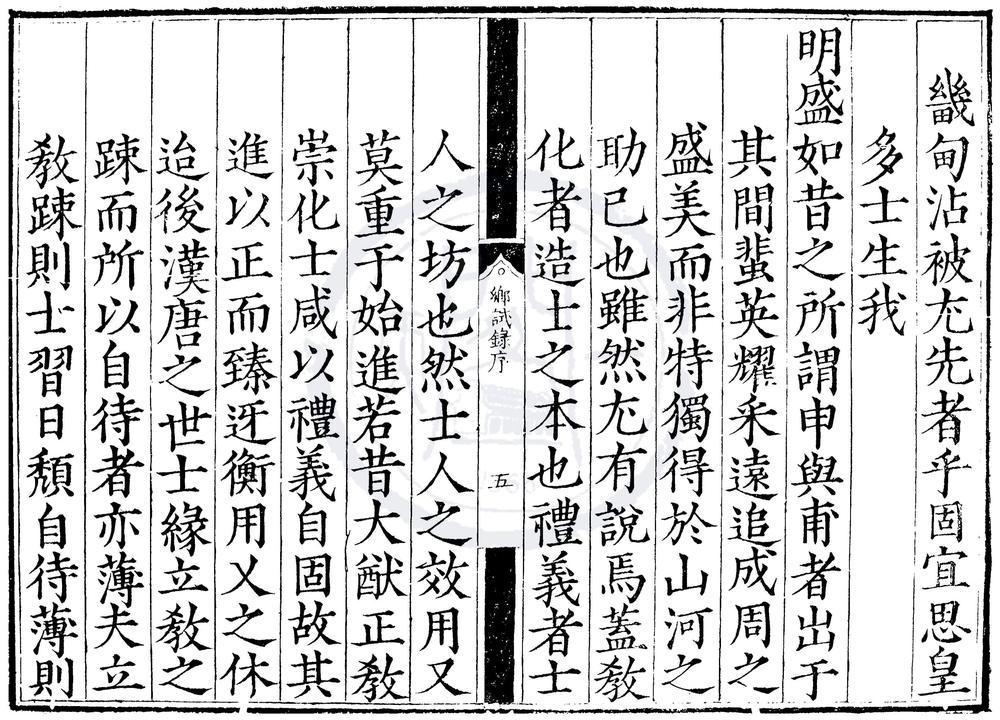 畿甸沾被尤先者乎固宜思皇
多士生我
明盛如昔之所謂申與甫者出于
其間蜚英耀采遠追成周之
盛美而非特獨得於山河之
助已也雖然尤有說焉蓋敎
化者造士之本也禮義者士
鄉試錄序
五
人之坊也然士人之效用又
莫重于始進若昔大猷正敎
崇化士咸以禮義自固故其
進以正而臻迓衡用乂之休
迨後漢唐之世士緣立敎之
踈而所以自待者亦薄夫立
敎踈則士習日頹自待薄則